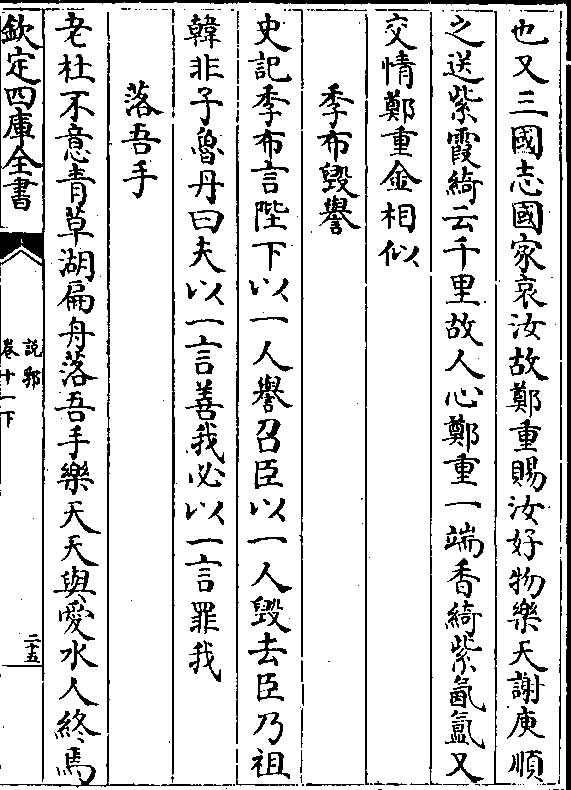 也又三國志國家哀汝故鄭重賜汝好物樂天謝庾順
之送紫霞綺云千里故人心鄭重一端香綺紫氤氳又
交情鄭重金相似
季布毀譽
史記季布言陛下以一人譽召臣以一人毀去臣乃祖
韓非子魯丹曰夫以一言善我必以一言罪我
落吾手
老杜不意青草湖扁舟落吾手樂天天與愛水人終焉
欽定四庫全書
說郛
卷十一下
二十五